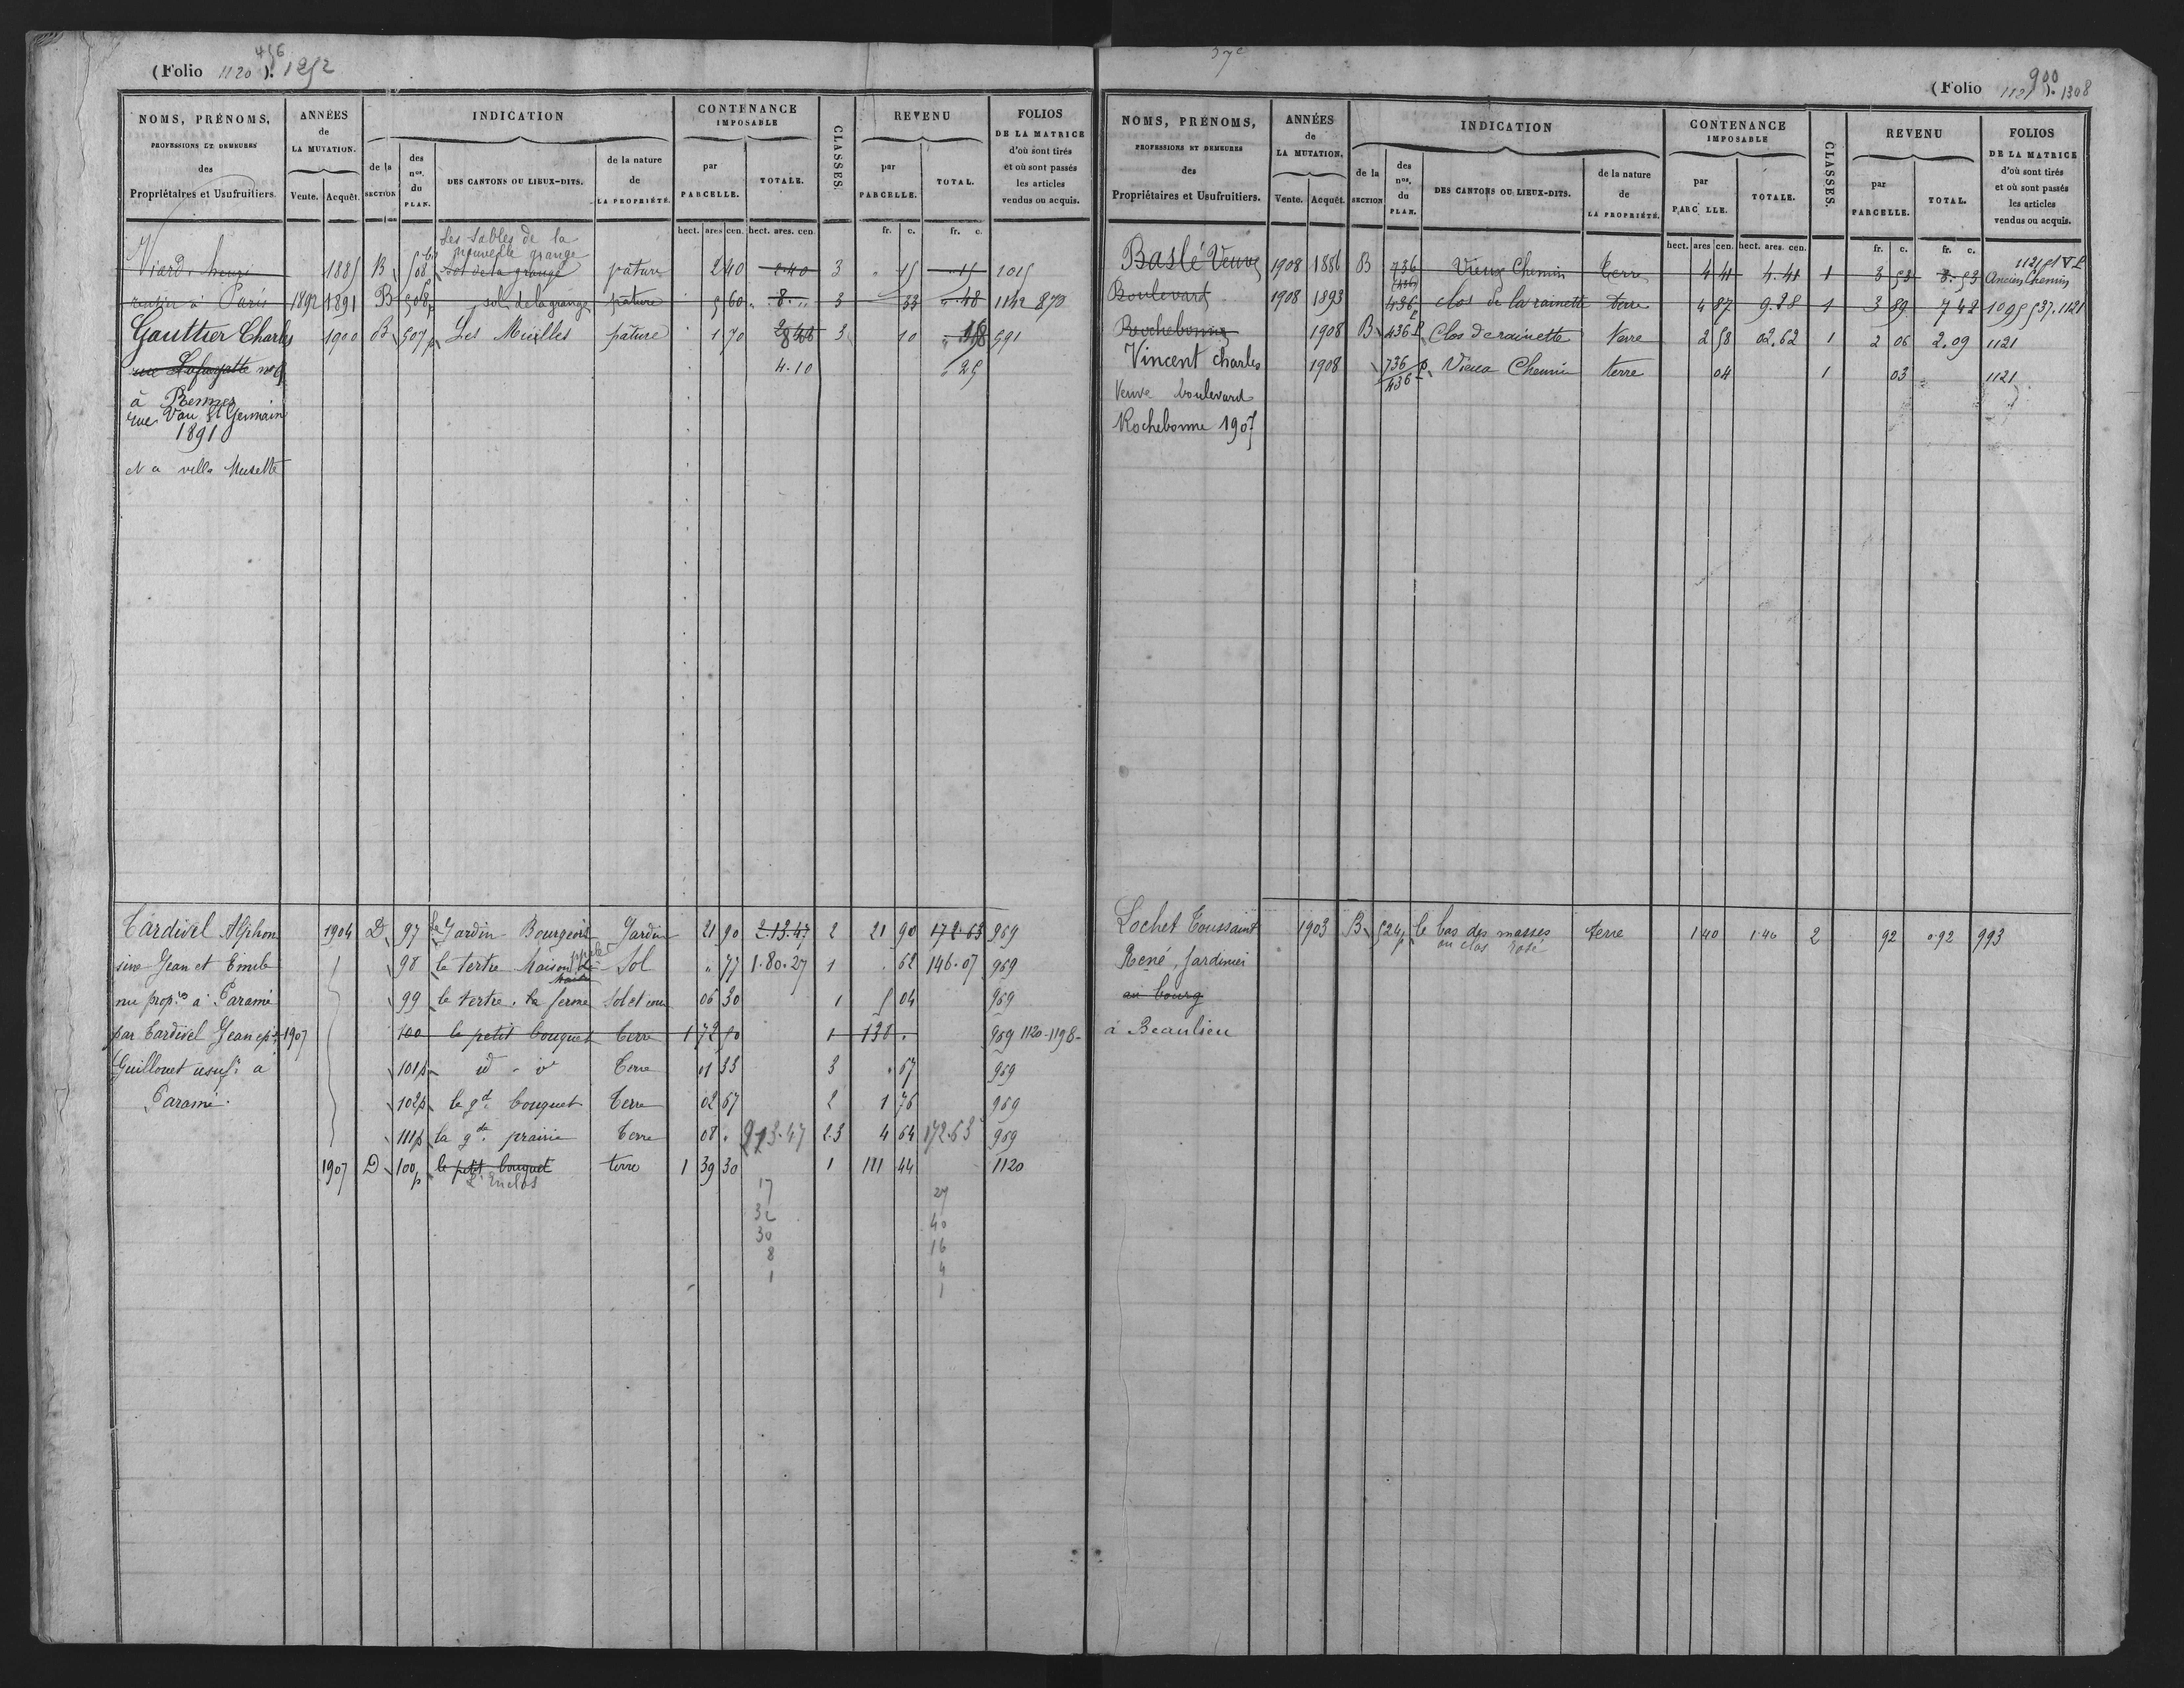 (Folio 1120). 456 1252
NOMS, PRÉNOMS, PROFESSIONS ET DEMEURES des Propriétaires et Usufruitiers.
ANNÉES de LA MUTATION. Vente. Acquêt.
INDICATION
de la SECTION
des nos. du PLAN.
DES CANTONS OU LIEUX-DITS.
de la nature de LA PROPRIÉTÉ.
CONTENANCE IMPOSABLE
par PARCELLE. TOTALE.
CLASSES.
REVENU
par PARCELLE. TOTAL.
FOLIOS DE LA MATRICE d'où sont tirés et où sont passés les articles vendus ou acquis.
hect. ares cen. hect. ares. cen. fr. c. fr. c.
Les Sables de la
nouvelle grange
Viard henri 1885 B 508 Sol de la grange pature 2 40 2.40 3 " 15 " 15 1015
rentier à Paris 1892 1891 B 508p sol de la grange pature 5 60 8 " 3 33 " 48 1142 870
Gauttier Charles 1900 B 507p Les Mielles pature 1 70 3 10 591
rue Lafayette no 9 4.10 " 25
à Rennes
rue Vau St Germain
1891
et a villa Musette
Tardivel Alphon 1904 D 97 Le Jardin Bourgeois Jardin 21 90 2.13.47 2 21 90 172.63 969
sine Jean et Emile 98 le tertre Maison Sol " 77 1.80.27 1 . 62 146.07 969
nu prop.res à Paramé 99 le tertre. la ferme Sol et cour 06 30 1 5 04 969
par Tardivel Jean ep. 1907 100 le petit bouquet Terre 1 72 50 1 138 . 969 1120-1198
Guillouet usuf. à 101p id Terre 01 33 3 . 67 969
Paramé. 102p le gd bouquet Terre 02 67 2 1 76 969
111p la gde prairie Terre 08 . 213.47 2.3 4 64 172.63 969
1907 D 100p le petit bouquet terre 1 39 30 1 111 44 1120
L'Enclos
17 27
32 40
30 16
8 4
1 1
(Folio 1121). 900 1308
NOMS, PRÉNOMS, PROFESSIONS ET DEMEURES des Propriétaires et Usufruitiers.
ANNÉES de LA MUTATION. Vente. Acquêt.
INDICATION
de la SECTION
des nos. du PLAN.
DES CANTONS OU LIEUX-DITS.
de la nature de LA PROPRIÉTÉ.
CONTENANCE IMPOSABLE
par PARC LLE. TOTALE.
CLASSES.
REVENU
par PARCELLE. TOTAL.
FOLIOS DE LA MATRICE d'où sont tirés et où sont passés les articles vendus ou acquis.
hect. ares cen. hect. ares. cen. fr. c. fr. c.
Baslé Veuve 1908 1886 B 736 (436) Vieux Chemin terre 4 41 4.41 1 3 53 3.53 Ancien Chemin
Boulevard 1908 1893 436p clos de la rainette terre 4 87 9.28 1 3 89 7 42 1095 537.1121
Rochebonne 1908 B 436p Clos de rainette Terre 2 58 02.62 1 2 06 2.09 1121
Vincent Charles 1908 736/436 p Vieux Chemin terre 04 1 03 1121
Veuve boulevard
Rochebonne 1907
Lochet Toussaint 1903 B 524p le bas des masses terre 1 40 1.40 2 92 0.92 993
ou clos rosé
René, Jardinier
au bourg
à Beaulieu